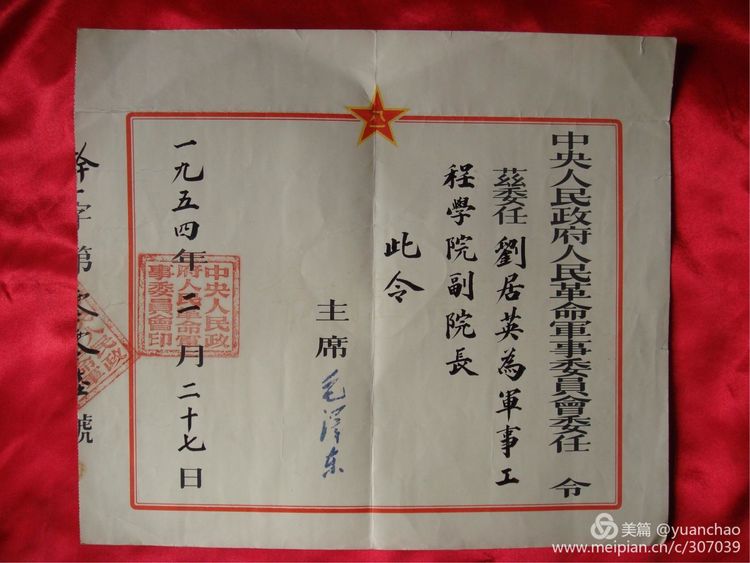 中央人民政府人民革命軍事委員會委任 令
茲委任劉居英為軍事工
程學院副院長
此令
主席 毛澤东
一九五四年二月二十七日
中央人民政
府人民革命軍
事委員會印
字第
號
八一
美篇 @yuanchao
www.meipian.cn/c/307039